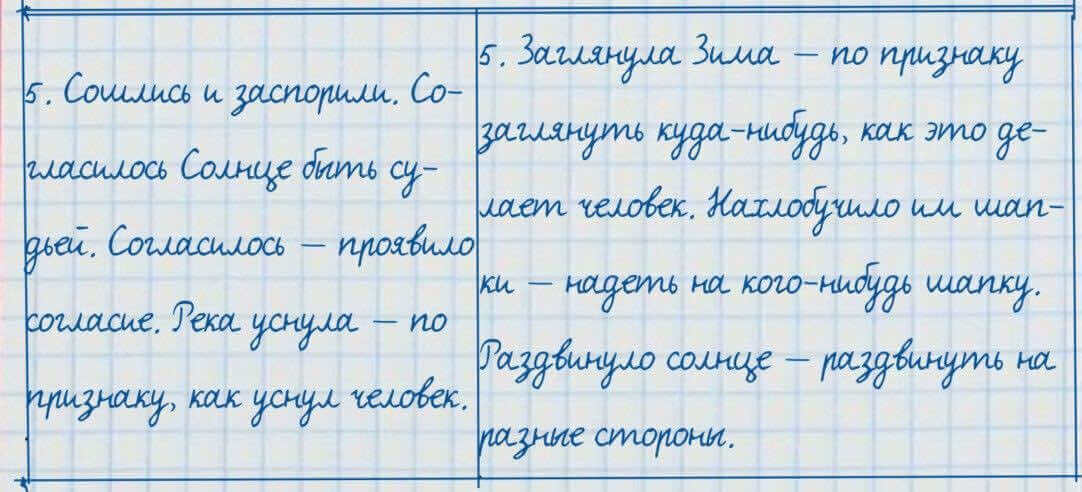 5. Сошлись и заспорили. Со-
гласилось Солнце быть су-
дьей. Согласилось – проявило
согласие. Река уснула – по
признаку, как уснул человек.
5. Заглянула Зима – по признаку
заглянуть куда-нибудь, как это де-
лает человек. Нахлобучило им шап-
ки – надеть на кого-нибудь шапку.
Раздвинуло солнце – раздвинуть на
разные стороны.